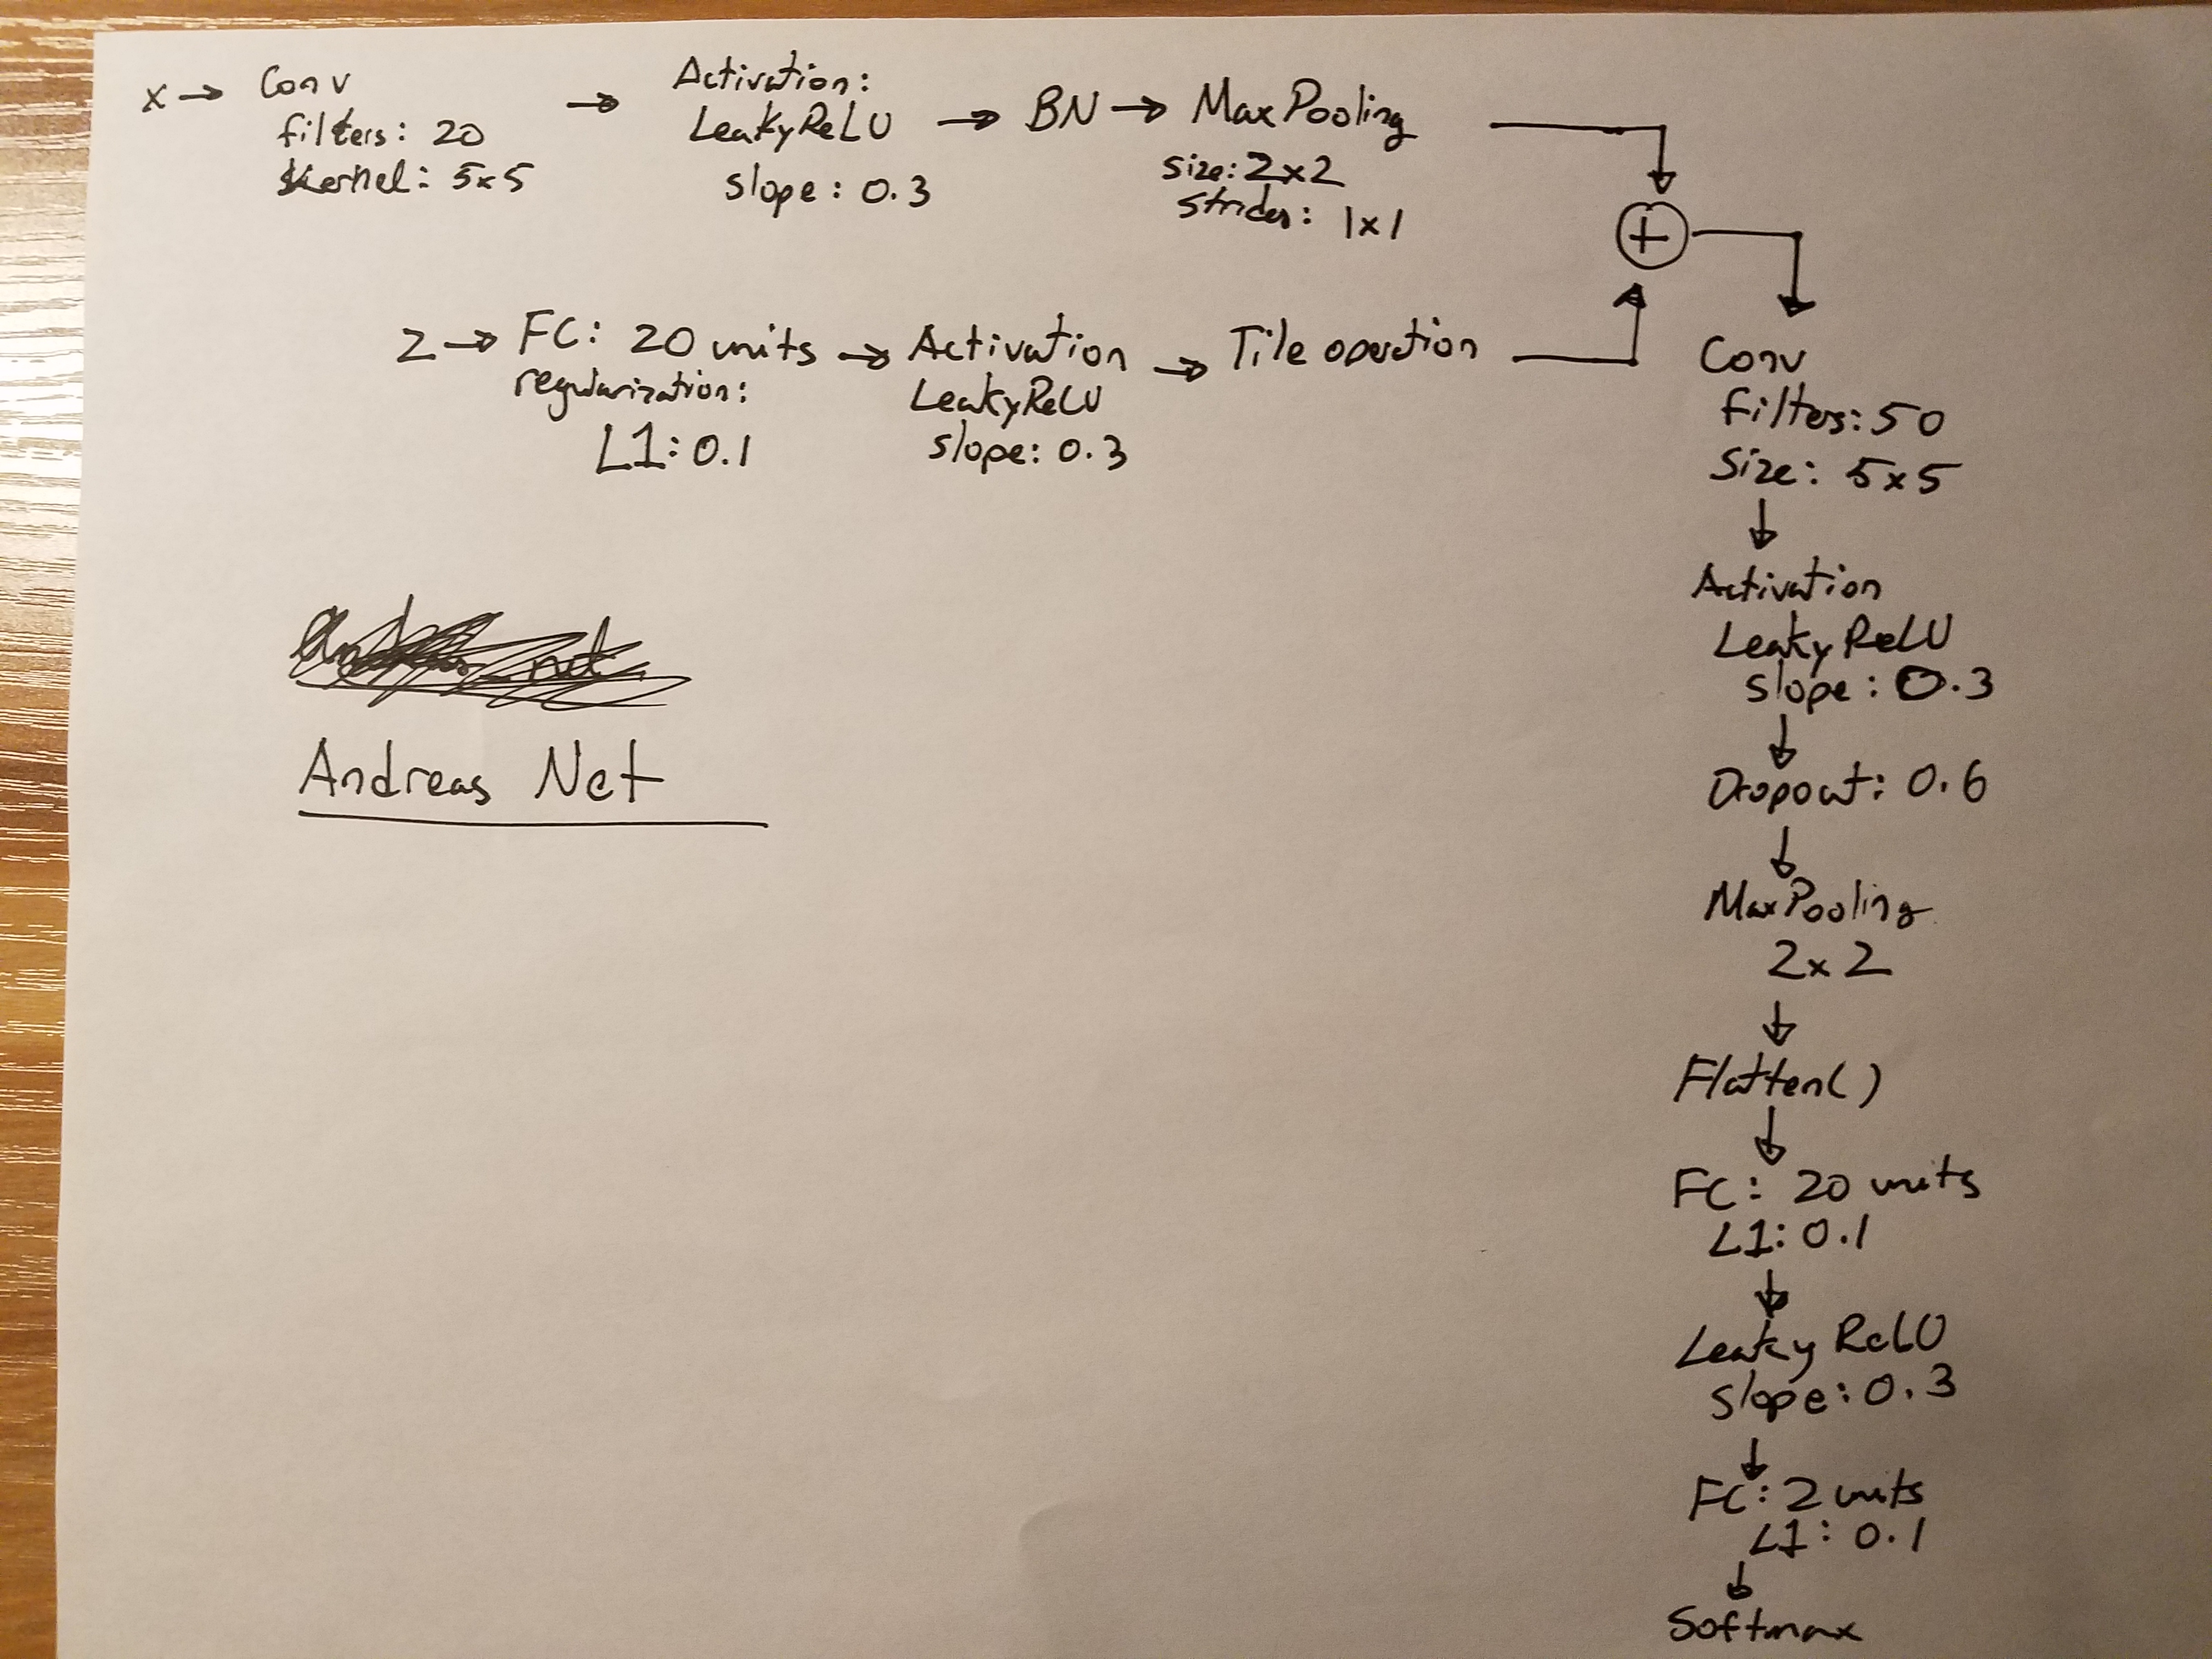 x → Conv
filters: 20
kernel: 5x5
→ Activation:
LeakyReLU
slope: 0.3
→ BN → MaxPooling
size: 2x2
strides: 1x1
+
z → FC: 20 units
regularization:
L1: 0.1
→ Activation
LeakyReLU
slope: 0.3
→ Tile operation
Conv
filters: 50
Size: 5x5
Activation
LeakyReLU
slope: 0.3
Dropout: 0.6
MaxPooling
2x2
Flatten()
FC: 20 units
L1: 0.1
Leaky ReLU
slope: 0.3
FC: 2 units
L1: 0.1
Softmax
Andreas Net